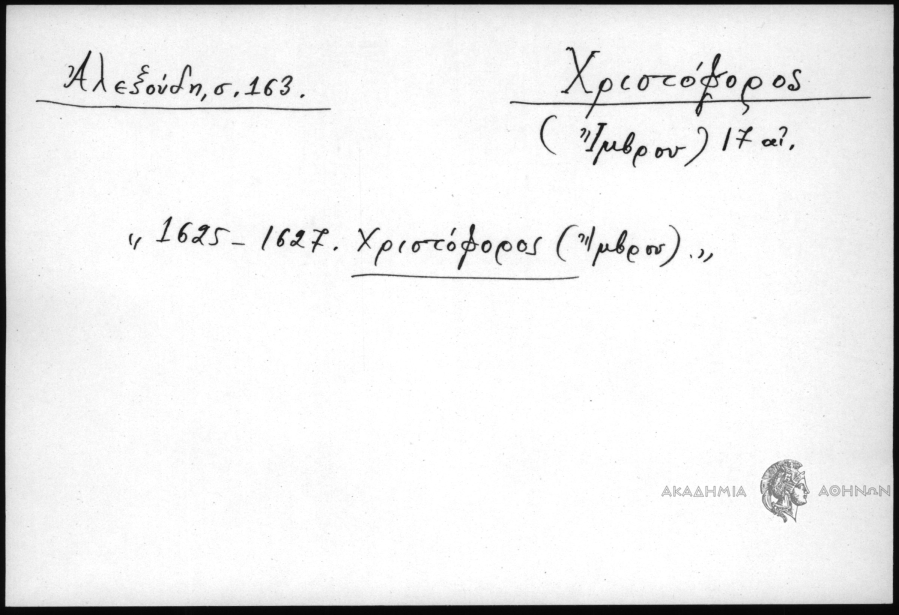 Ἀλεξούδη, σ. 163.
Χριστόφορος
(Ἴμβρου) 17 αἰ.
„ 1625 – 1627. Χριστόφορος (Ἴμβρου). „
ΑΚΑΔΗΜΙΑ ΑΘΗΝΩΝ